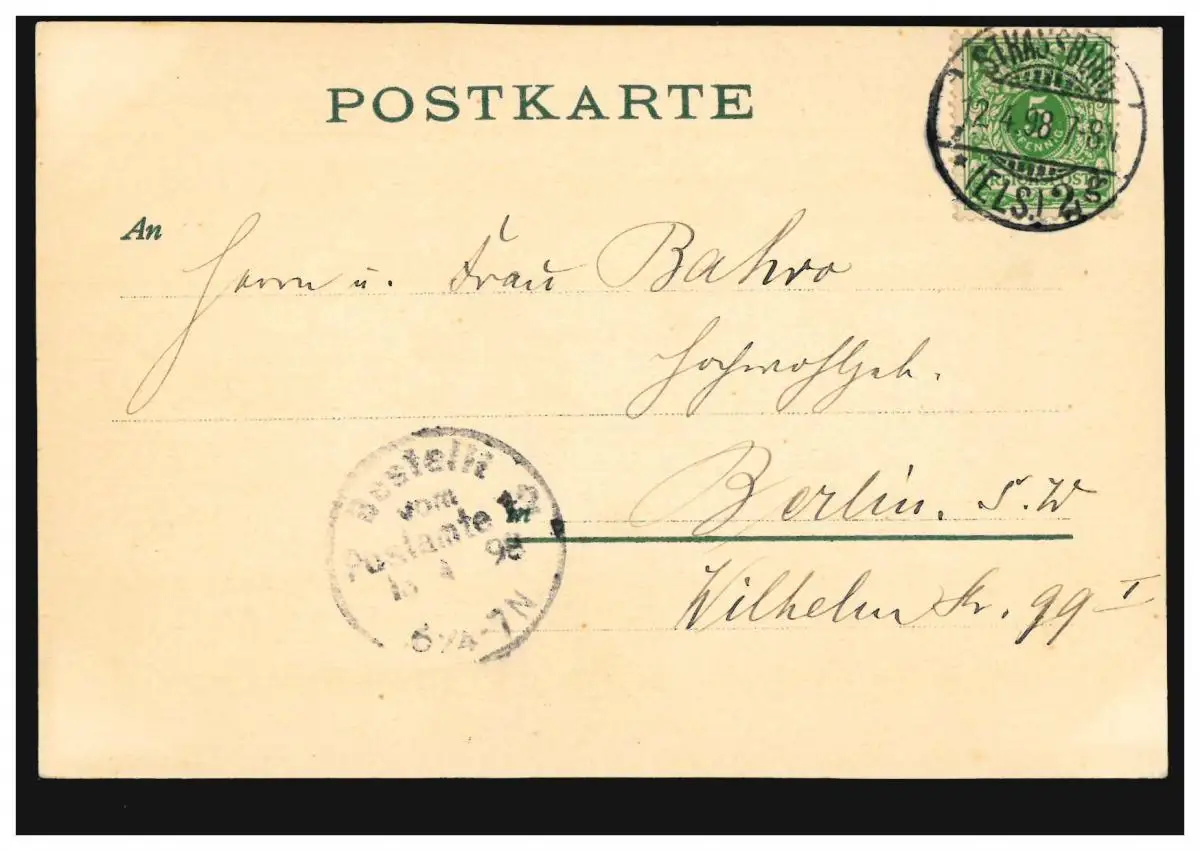 POSTKARTE
STRASSBURG
12.4.98 7-8V
(ELS.) 2
5
PFENNIG
REICHSPOST
An
Herrn u. Frau Bahro
Hochwohlgeb.
Bestellt
vom
Postamte
4 98
6 1/4-7N
in
Berlin. S.W
Wilhelm Str. 99 I